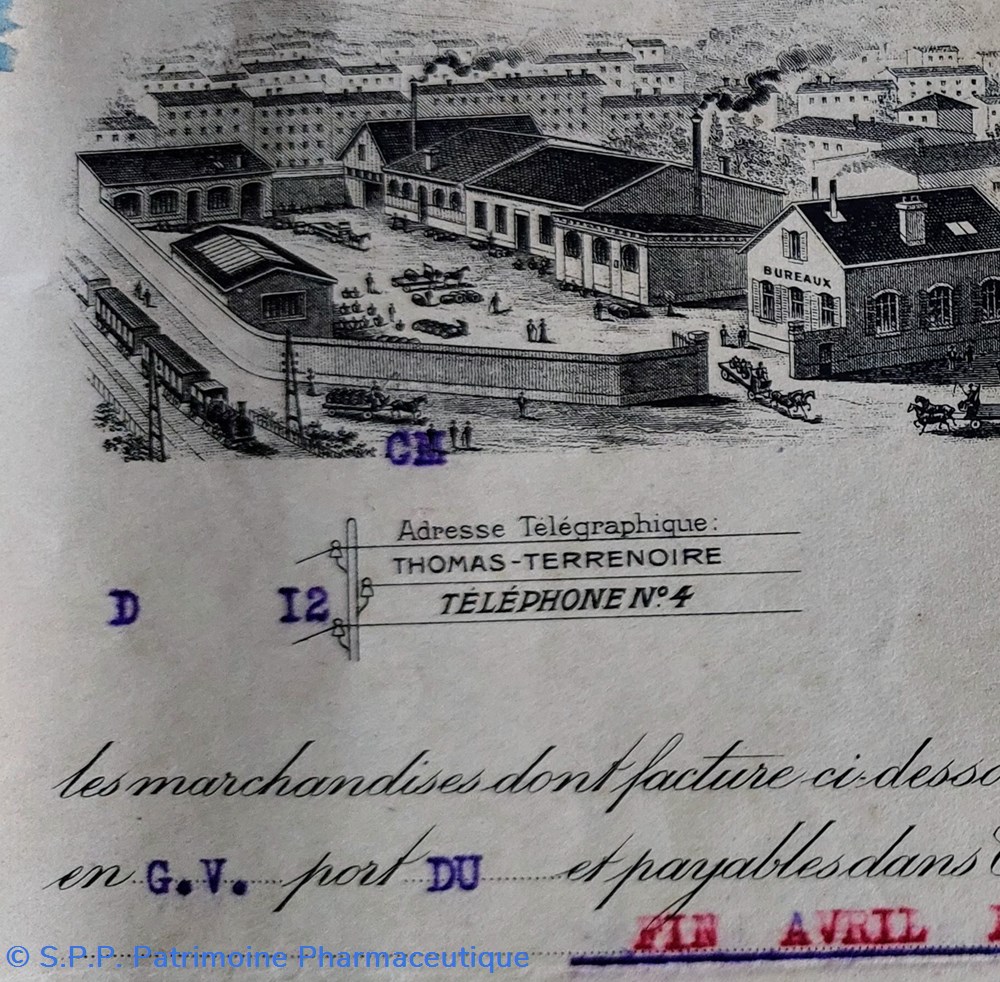 BUREAUX
CM
Adresse Télégraphique:
THOMAS-TERRENOIRE
D I2 TÉLÉPHONE Nº 4
les marchandises dont facture ci-desso
en G.V. port DU et payables dans
FIN AVRIL
© S.P.P. Patrimoine Pharmaceutique